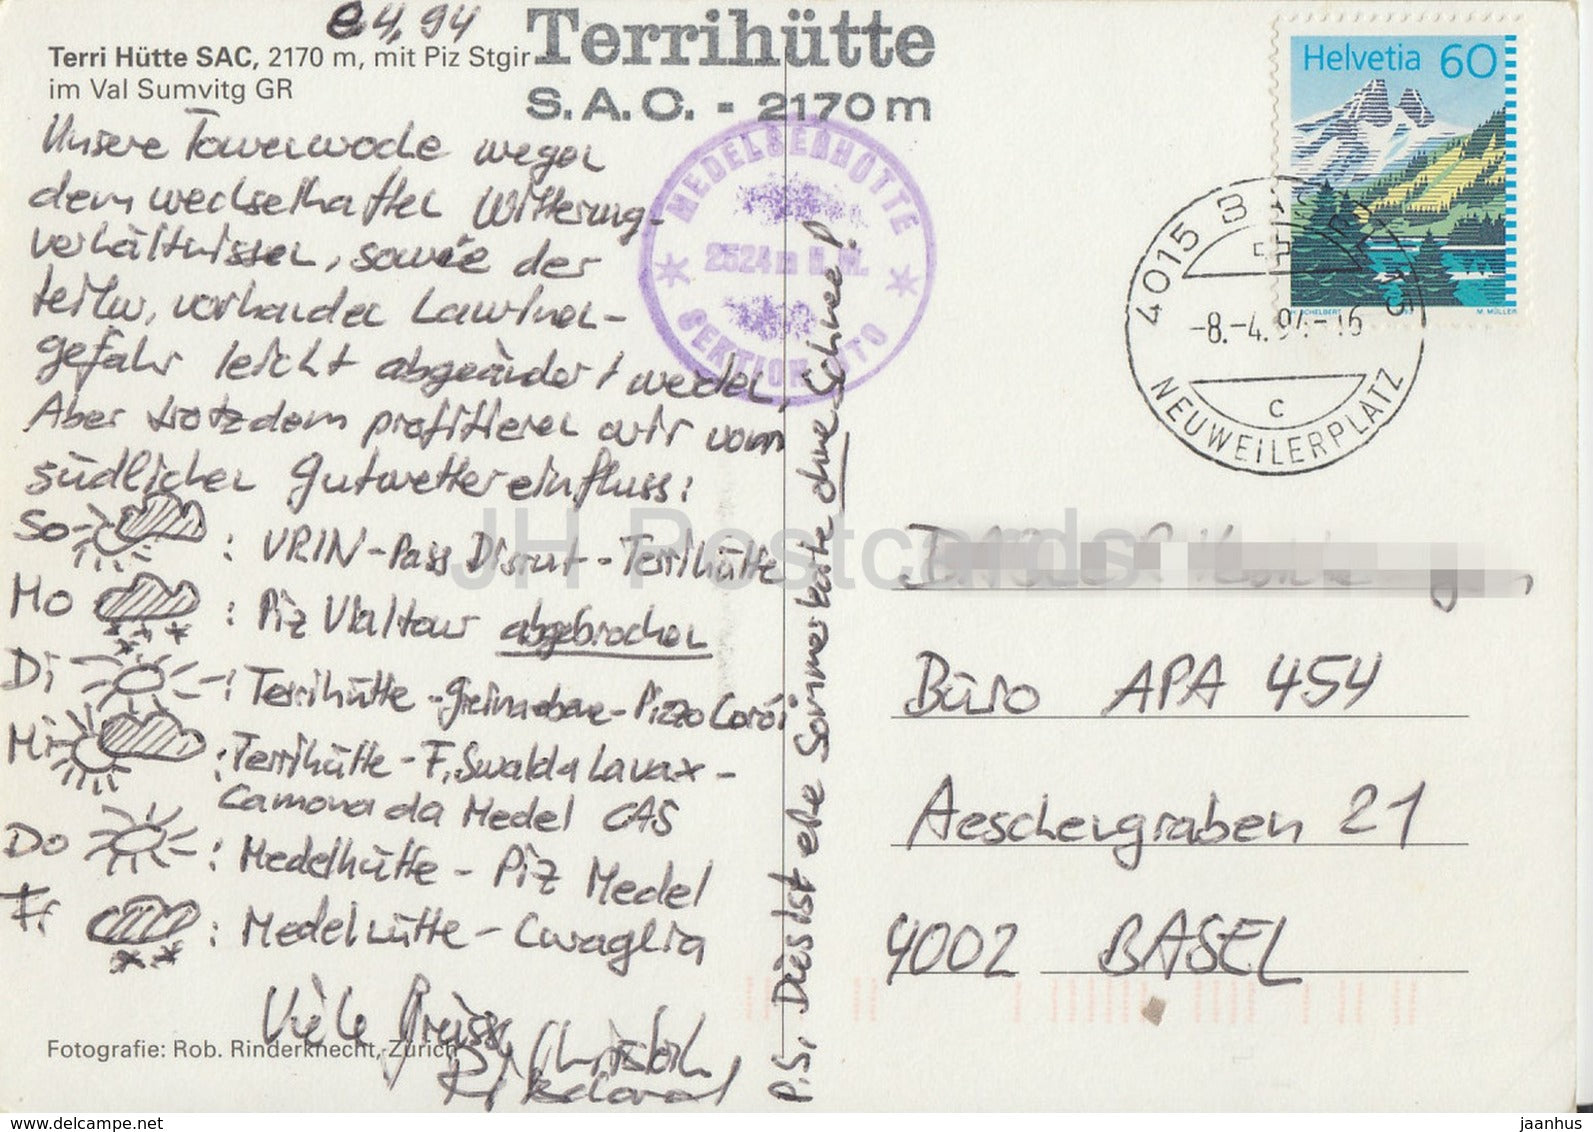 8.4.94
Terri Hütte SAC, 2170 m, mit Piz Stgir
im Val Sumvitg GR
Terrihütte
S.A.C. - 2170 m
Unsere Tourenwoche wegen
dem wechselhaften Witterung-
verhältnissen, sowie der
teilw. vorhanden Lawinen-
gefahr leicht abgeändert werden.
Aber trotzdem profitieren wir vom
südlichen Gutwettereinfluss:
So : VRIN-Pass Disrut-Terrihütte
Mo : Piz Vialtour abgebrochen
Di : Terrihütte-Greinaebene-Pizzo Coroi
Mi : Terrihütte-F. Swalda Lavax-
Camona da Medel CAS
Do : Medelhütte-Piz Medel
Fr : Medelhütte-Curaglia
Viele Grüsse
Christoph
Fotografie: Rob. Rinderknecht, Zürich
P.S. Dies ist ehe Sommerkarte ohne Schnee!
MEDELSERHÜTTE
2524 m ü. M.
SEKTION UTO
Helvetia 60
H. SCHELBERT
M. MÜLLER
4015 BASEL 15
-8.-4.94-16
C
NEUWEILERPLATZ
Büro APA 454
Aeschengraben 21
4002 BASEL
JH Postcards
www.delcampe.net
jaanhus